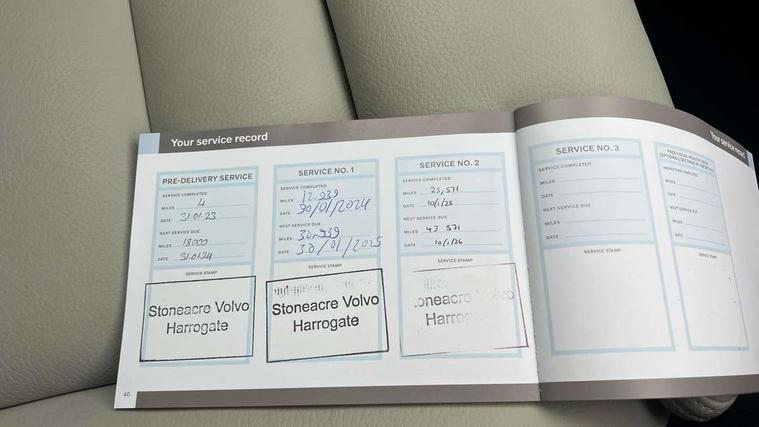 Your service record
PRE-DELIVERY SERVICE
SERVICE COMPLETED
MILES 4
DATE 31.01.23
NEXT SERVICE DUE
MILES 18000
DATE 31.01.24
SERVICE STAMP
Stoneacre Volvo
Harrogate
SERVICE NO. 1
SERVICE COMPLETED
MILES 12,939
DATE 30/01/2024
NEXT SERVICE DUE
MILES 30,939
DATE 30/01/2025
SERVICE STAMP
Stoneacre Volvo
Harrogate
SERVICE NO. 2
SERVICE COMPLETED
MILES 25,571
DATE 10/1/25
NEXT SERVICE DUE
MILES 43 571
DATE 10/1/26
SERVICE STAMP
oneacre Vo vo
Harro
40
Your service record
SERVICE NO. 3
SERVICE COMPLETED
MILES
DATE
NEXT SERVICE DUE
MILES
DATE
SERVICE STAMP
INSPECTION COMPLETED
MILES
DATE
NEXT SERVICE DUE
MILES
DATE
SERVICE STAMP